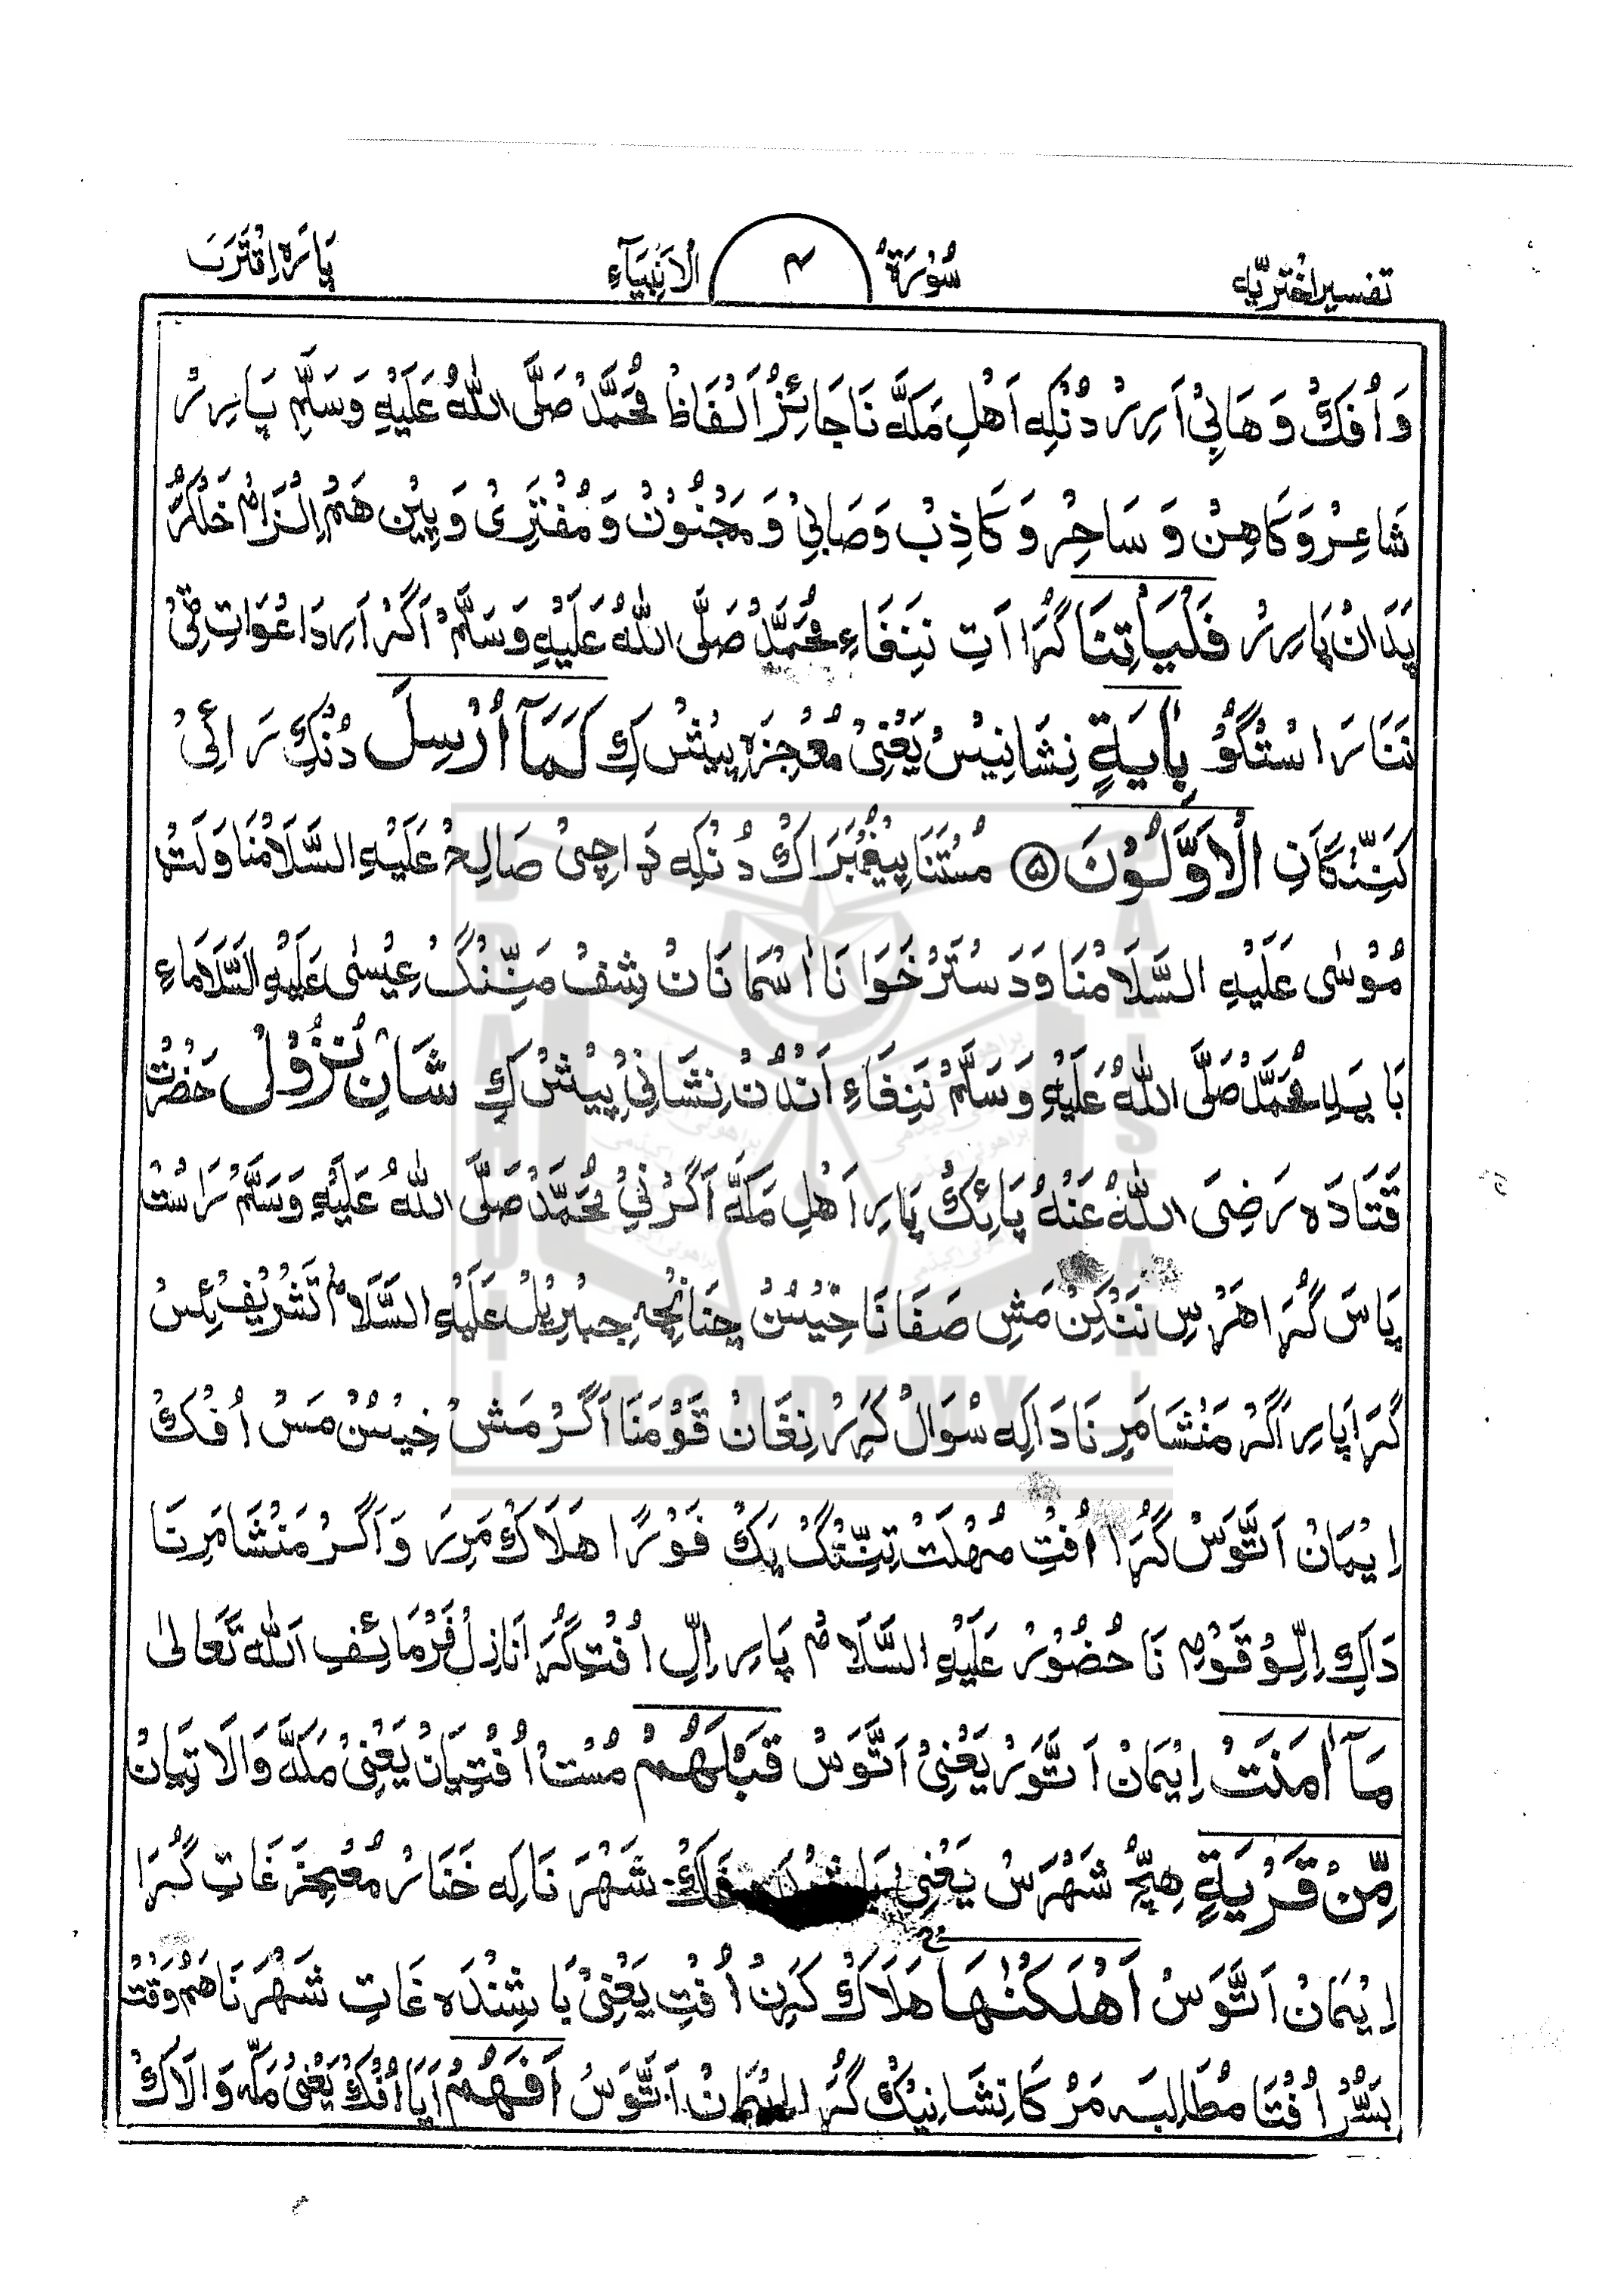 تفسیر اختریّه سُوْرَةُ ۴ الْاَنْبِیَآءِ پَارَه اِقْتَرَبَ
وَ اُفَکْ وَهَابِیْ اَرِرْ دُنْکِه اَهْلِ مَکَّه نَاجَائِزْ اَلْفَاظْ مُحَمَّدْ صَلَّی اللهُ عَلَیْهِ وَسَلَّمْ پَارِرْ
شَاعِرْ وَ کَاهِنْ وَ سَاحِرْ وَ کَاذِبْ وَ صَابِیْ وَ مَجْنُوْنْ وَ مُفْتَرِیْ وَ پِیْن هَمْ اِلْزَامْ خَلْکَرْ
پَدَانْ پَارِرْ فَلْیَاْتِنَا گُڑَا اَتِ نَنِغَاءِ مُحَمَّدْ صَلَّی اللهُ عَلَیْهِ وَسَلَّمْ اَگَرْ اَرِ دَاعُوَاتِ ٹِیْ
نَنَا رَاسْتْگُوْ بِاٰیَةٍ نِشَانِیْسْ یَعْنِیْ مُعْجِزَه پِیْشْ کِ کَمَآ اُرْسِلَ دُنْکِ رَائِیْ
کَنِنْگَانِ الْاَوَّلُوْنَ ۵ مُسْتَنَا پِیْغَمْبَرَاکْ دُنْکِه ڈَاچِیْ صَالِحْ عَلَیْهِ السَّلَامْنَا وَلَٹْ
مُوْسٰی عَلَیْهِ السَّلَامْنَا وَ دَسْتَرْخَوَانَا اٰسْمَانَانْ شِفْ مَنِّنْگْ عِیْسٰی عَلَیْهِ السَّلَامَاءِ
بَایَدِ مُحَمَّدْ صَلَّی اللهُ عَلَیْهِ وَسَلَّمْ نَنِغَاءِ اَنْدُنْ نِشَانِیْ پِیْشْ کِ شَانِ نُزُوْلْ حَضْرَتْ
قَتَادَه رَضِیَ اللهُ عَنْهُ پَائِکْ پَارِ اَهْلِ مَکَّه اَگَرْ نِیْ مُحَمَّدْ صَلَّی اللهُ عَلَیْهِ وَسَلَّمْ رَاسْتْ
پَاسَ گُڑَا هَرْسِ نَنْکِنْ مَشِ صَفَانَا خِیْسُنْ چِنَانْچِه جِبْرِیْلْ عَلَیْهِ السَّلَامْ تَشْرِیْف بِئِسْ
گُڑَا پَارِ اَگَرْ مَنْشَا مَرِ نَا دَاکِه سُوَالْ کَرِرْ نِغَانْ قَوْمْنَا اَگَرْ مَشْ خِیْسُنْ مَسْ اُفْکْ
اِیْمَانْ اَتَّوَسْ گُڑَا اُفْتِ مُهْلَتْ تِنِّنْگْ پَکْ فَوْرًا هَلَاکْ مَرِرَ وَ اَگَرْ مَنْشَا مَرِ نَا
دَاکِ اِلِّوْ قَوْمِ نَا حُضُوْرْ عَلَیْهِ السَّلَامْ پَارِ اِلِّ اُفْتِ گُڑَا نَازِلْ فَرْمَائِفِ اَللهْ تَعَالٰی
مَآ اٰمَنَتْ اِیْمَانْ اَتَّوَرْ یَعْنِیْ اَتَّوَسْ قَبْلَهُمْ مُسْتْ اُفْتِیَانْ یَعْنِیْ مَکَّه وَالَاتِیَانْ
مِّنْ قَرْیَةٍ هِیچْ شَهْرَسْ یَعْنِیْ شَهْرَ نَا کِه خَنَارْ مُعْجِزَغَاتِ گُڑَا
اِیْمَانْ اَتَّوَسْ اَهْلَکْنٰهَا هَلَاکْ کَرِنْ اُفْتِ یَعْنِیْ بَاشِنْدَه غَاتِ شَهْرَ نَا هَمْ وَقْتْ
بَسُّرْ اُفْتَا مُطَالِبَه مَرْکَا نِشَانِیْکْ گُڑَا اِیْمَانْ اَتَّوَسْ اَفَهُمْ اَیَا اُفْکْ یَعْنِیْ مَکَّه وَالَاکْ